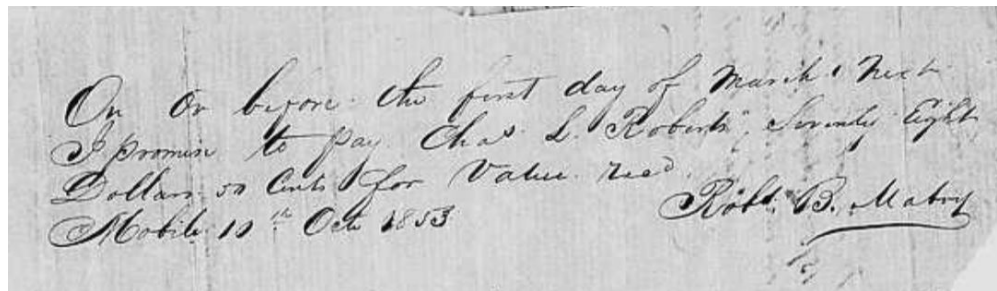 On or before the first day of March next
I promise to pay Chas L. Roberts, Seventy Eight
Dollars 50 Cents for Value recd.
Mobile 10th Oct 1853
Robt. B.